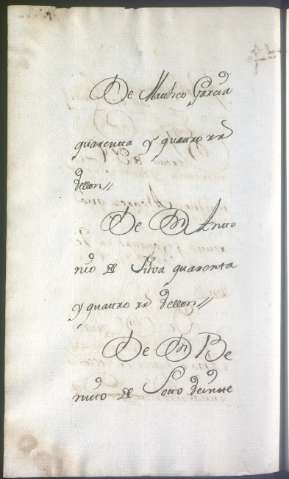 De Mauricio Garcia
quarenta y quatro rs
de vellon //
De Dn Anto
nio de Silva quarenta
y quatro rs de vellon //
De Dn Be
nito de Soto